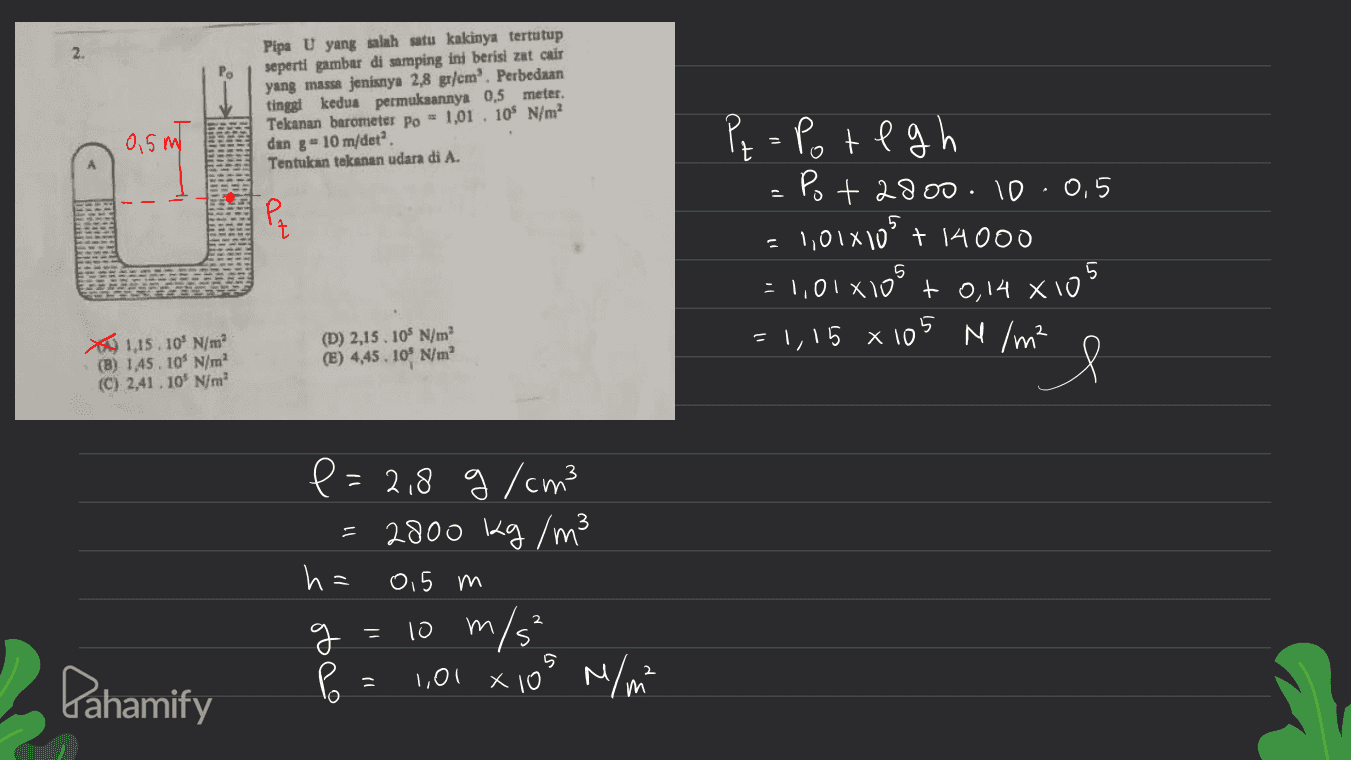 2.
Pipa U yang salah satu kakinya tertutup
seperti gambar di samping ini berisi zat cair
yang massa jenisnya 2,8 gr/cm³. Perbedaan
tinggi kedua permukaannya 0,5 meter.
Tekanan barometer po = 1,01 . 10⁵ N/m²
dan g = 10 m/det².
Tentukan tekanan udara di A.
Po
0,5 m
A
Pt
(A) 1,15 . 10⁵ N/m²
(B) 1,45 . 10⁵ N/m²
(C) 2,41 . 10⁵ N/m²
(D) 2,15 . 10⁵ N/m²
(E) 4,45 . 10⁵ N/m²
Pt = Po + ρgh
= Po + 2800 . 10 . 0,5
= 1,01 x 10⁵ + 14000
= 1,01 x 10⁵ + 0,14 x 10⁵
= 1,15 x 10⁵ N/m²
ρ = 2,8 g/cm³
= 2800 kg/m³
h = 0,5 m
g = 10 m/s²
Po = 1,01 x 10⁵ N/m²
Pahamify